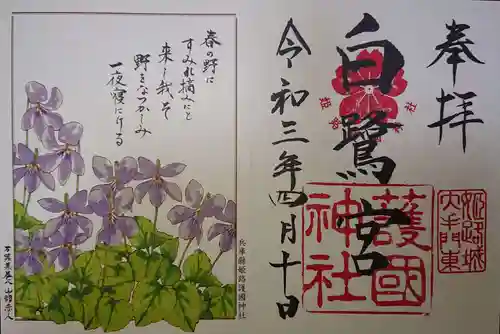 奉拝
白鷺宮
令和三年四月十日
護國
神社
姫路城
大手門東
春の野に
すみれ摘みにと
来し我そ
野をなつかしみ
一夜寝にける
兵庫縣姫路護國神社